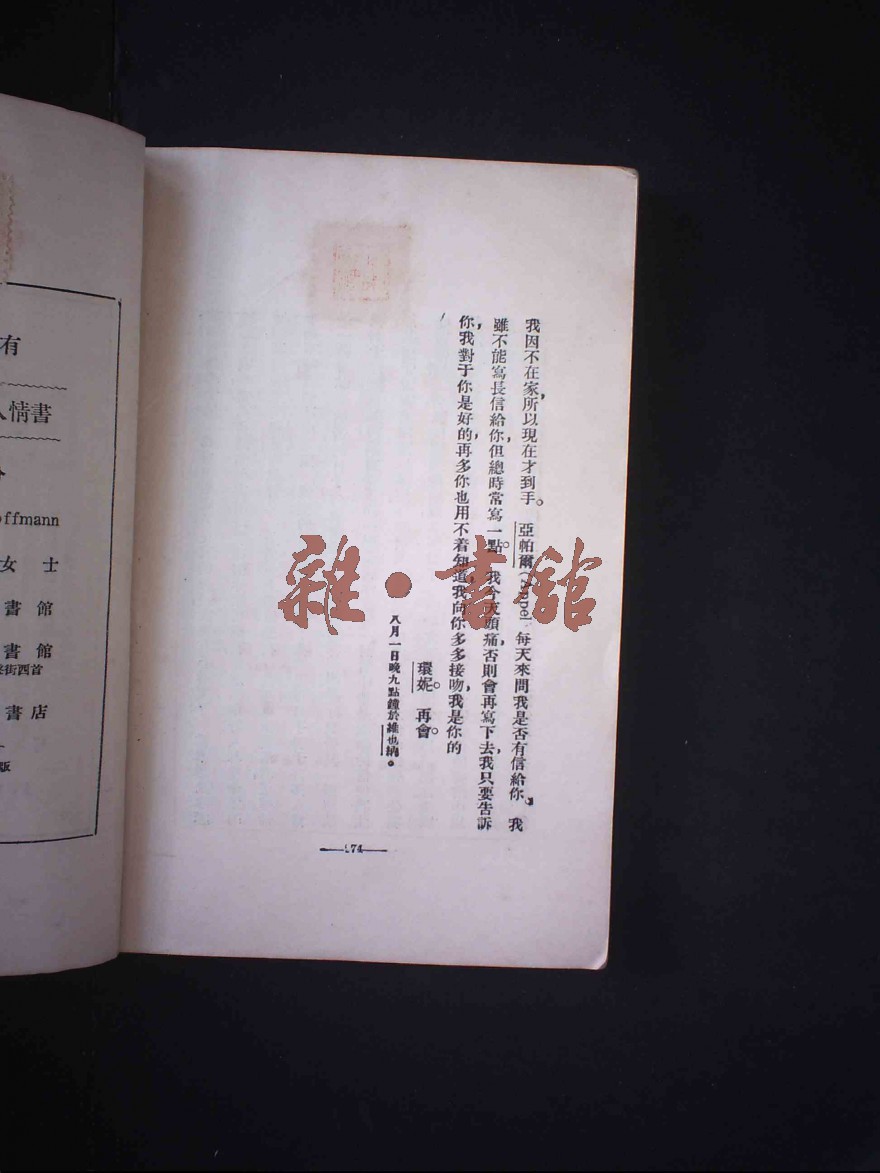 我因不在家，所以現在才到手。亞帕爾(Appel 每天來問我是否有信給你，我
雖不能寫長信給你，但總時常寫一點。我今天頭痛，否則會再寫下去，我只要告訴
你，我對于你是好的，再多你也用不着知道，我向你多多接吻，我是你的
環妮。再會。
八月一日晚九點鐘於維也納。
174
雜·書館
有
人情書
offmann
女士
書館
書館
街西首
書店
版